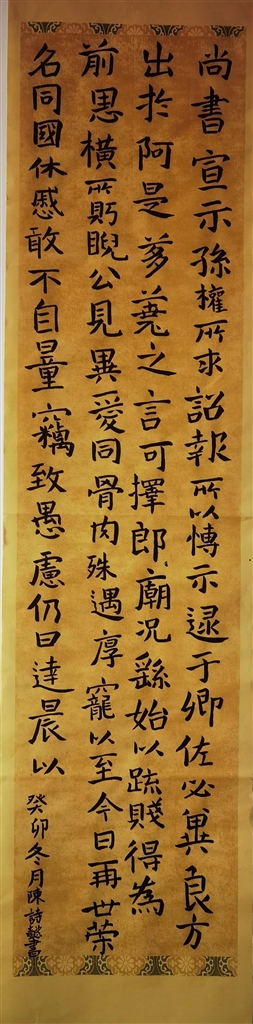 尚書宣示孫權所求詔報所以博示逮于卿佐必冀良方
出於阿是芻蕘之言可擇郎廟況繇始以疏賤得為
前恩橫所眄睨公見異愛同骨肉殊遇厚寵以至今日再世榮
名同國休慼敢不自量竊致愚慮仍日達晨以
癸卯冬月陳詩懿書